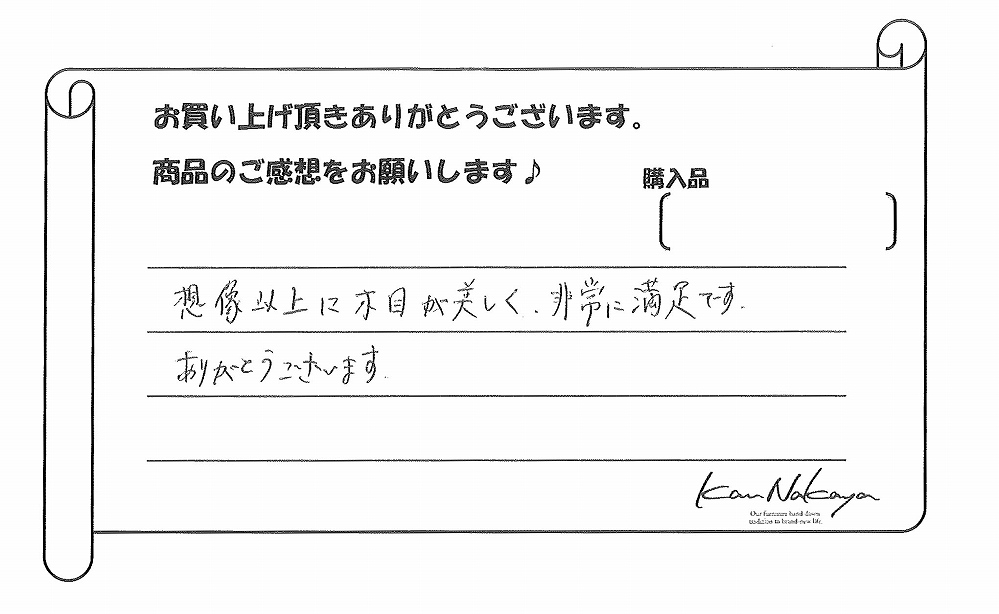 お買い上げ頂きありがとうございます。
商品のご感想をお願いします♪
購入品
想像以上に木目が美しく、非常に満足です.
ありがとうございます.
Kan Nakaya
Our furniture hand down
tradition to brand-new life.